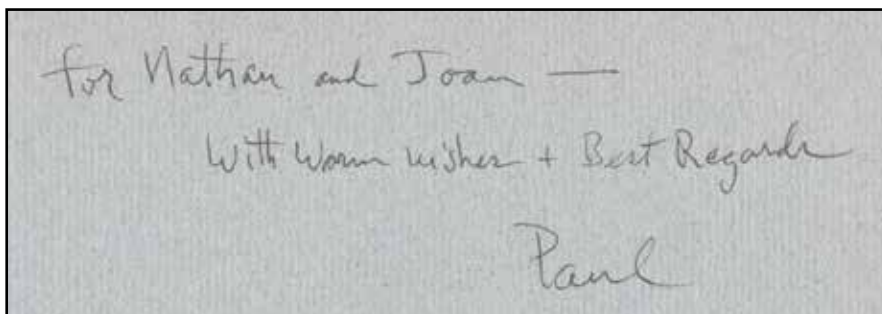 For Nathan and Joan —
With Warm wishes + Best Regards
Paul